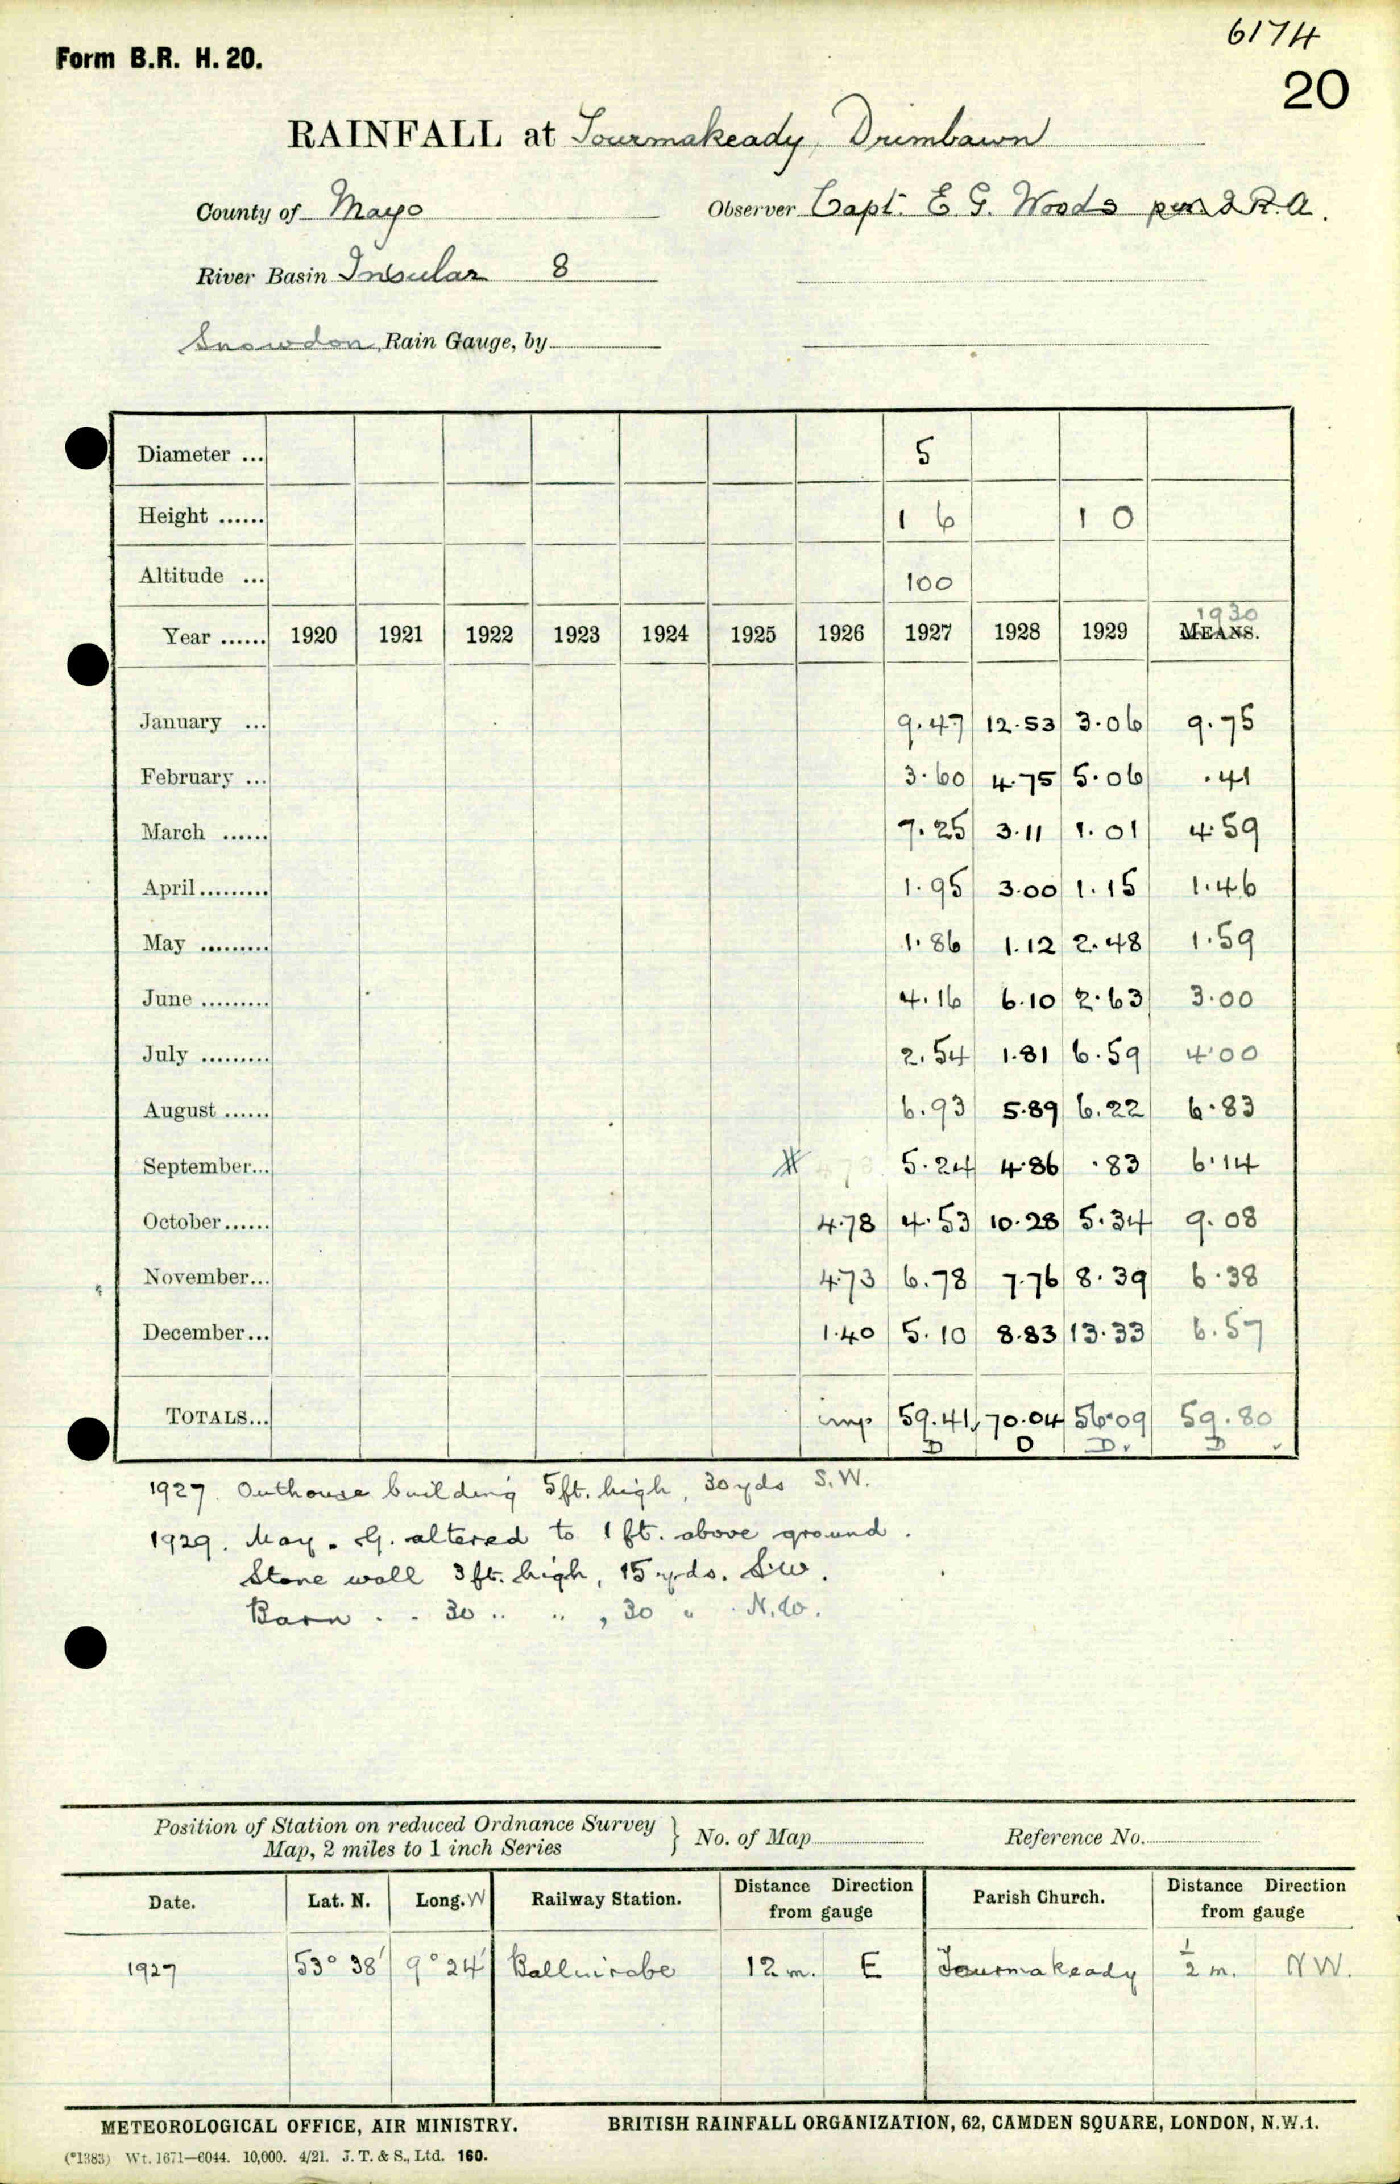 6174
Form B.R. H. 20.
20
RAINFALL at Tourmakeady, Drimbawn
County of Mayo Observer Capt. E. G. Woods R.A.
River Basin Insular 8
Snowdon Rain Gauge, by
Diameter ... 5
Height ...... 1 6 1 0
Altitude ... 100
1930
Year ...... 1920 1921 1922 1923 1924 1925 1926 1927 1928 1929 MEANS.
January ... 9.47 12.53 3.06 9.75
February ... 3.60 4.75 5.06 .41
March ...... 7.25 3.11 1.01 4.59
April ......... 1.95 3.00 1.15 1.46
May ......... 1.86 1.12 2.48 1.59
June ......... 4.16 6.10 2.63 3.00
July ......... 2.54 1.81 6.59 4.00
August ...... 6.93 5.89 6.22 6.83
September... 5.24 4.86 .83 6.14
October...... 4.78 4.53 10.28 5.34 9.08
November... 4.73 6.78 7.76 8.39 6.38
December... 1.40 5.10 8.83 13.33 6.57
TOTALS... imp 59.41 70.04 56.09 59.80
D D D. D
1927. Outhouse building 5ft. high, 30 yds S.W.
1929. May. G. altered to 1 ft. above ground.
Stone wall 3 ft. high, 15 yds. S.W.
Barn . . 30 .. .. , 30 " N.W.
Position of Station on reduced Ordnance Survey
Map, 2 miles to 1 inch Series } No. of Map Reference No.
Date. Lat. N. Long. W Railway Station. Distance Direction from gauge Parish Church. Distance Direction from gauge
1927 53° 38' 9° 24' Ballinrobe 12 m. E Tourmakeady 1/2 m. N W.
METEOROLOGICAL OFFICE, AIR MINISTRY. BRITISH RAINFALL ORGANIZATION, 62, CAMDEN SQUARE, LONDON, N.W.1.
(*1383) Wt. 1671—6044. 10,000. 4/21. J. T. & S., Ltd. 160.